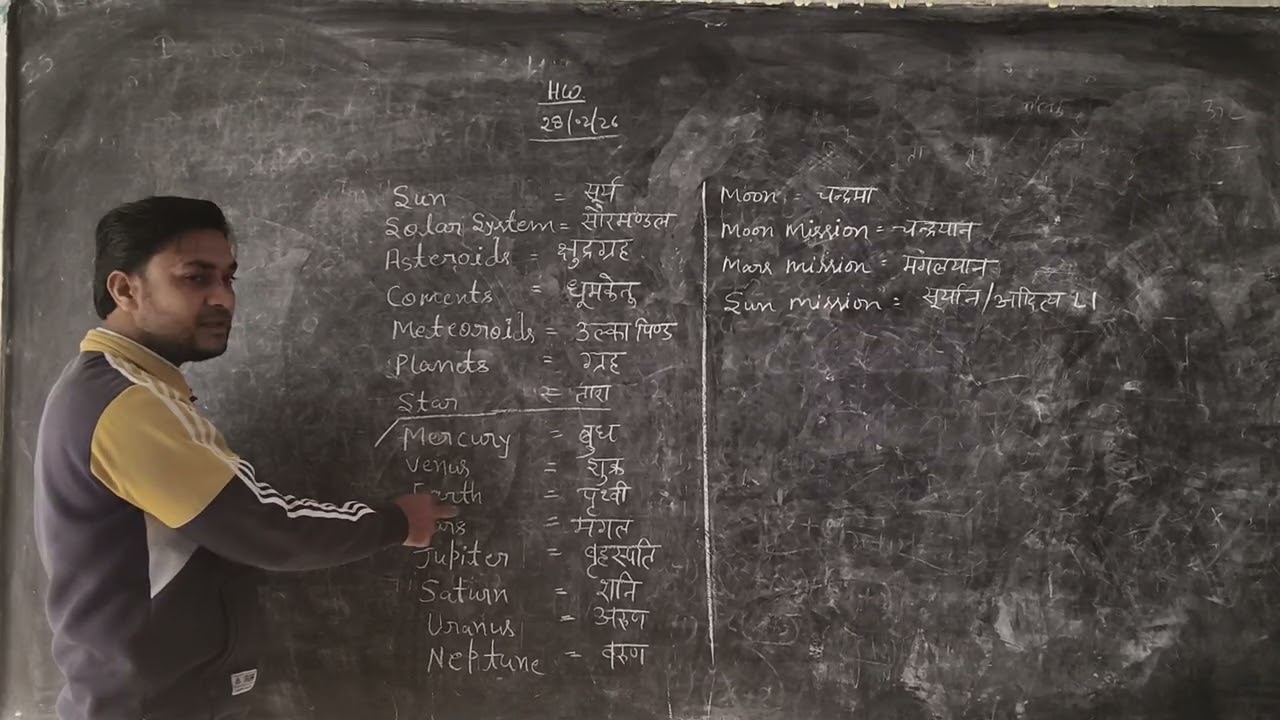 HW
28/02/26
Sun = सूर्य
Solar System = सौरमण्डल
Asteroids = क्षुद्रग्रह
Coments = धूमकेतु
Meteoroids = उल्का पिण्ड
Planets = ग्रह
Star = तारा
Mercury = बुध
Venus = शुक्र
Earth = पृथ्वी
ars = मंगल
Jupiter = बृहस्पति
Saturn = शनि
Uranus = अरुण
Neptune = वरुण
Moon = चन्द्रमा
Moon mission = चन्द्रयान
Mars mission = मंगलयान
Sun mission = सूर्यान/आदित्य L1